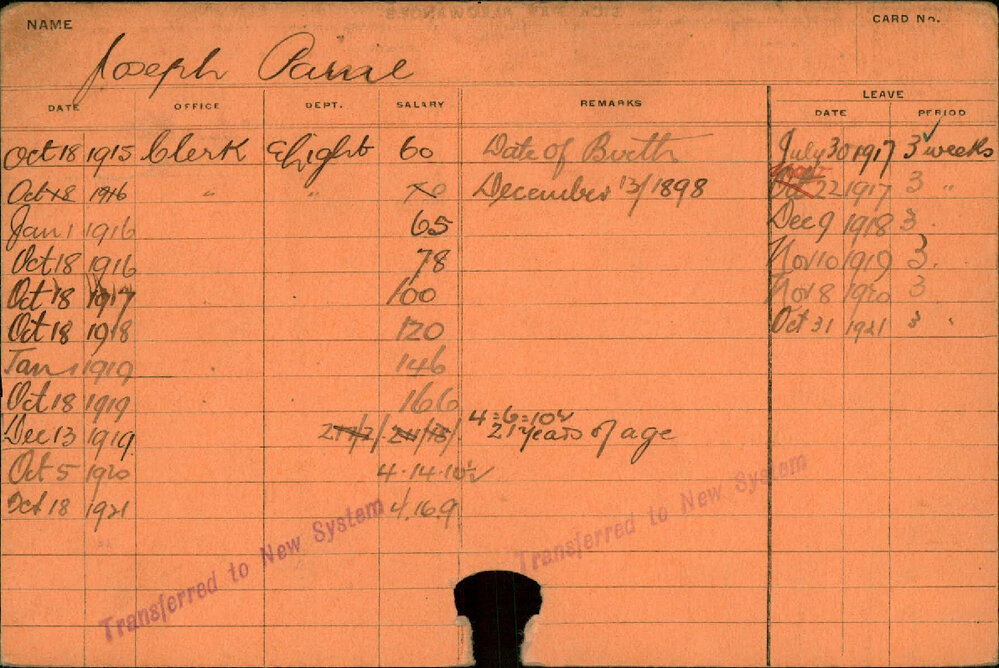 NAME
CARD No.
Joseph
DATE OFFICE DEPT. SALARY REMARKS LEAVE
DATE PERIOD
Oct 18 1915 Clerk 60 Date of Birth July 30 1917 3 weeks
Oct 18 1916 " " December 13/1898 22 1917 3 "
Jan 1 1916 65 Dec 9 1918 3
Oct 18 1916 78 Nov 10 1919 3
Oct 18 1917 100 Nov 8 1920 3
Oct 18 1918 120 Oct 31 1921 3 "
Jan 1 1919 146
Oct 18 1919 166
4=6=10½
Dec 13 1919 21 years of age
Oct 5 1920 4.14.10½
Oct 18 1921 4.16.9
Transferred to New System
Transferred to New System